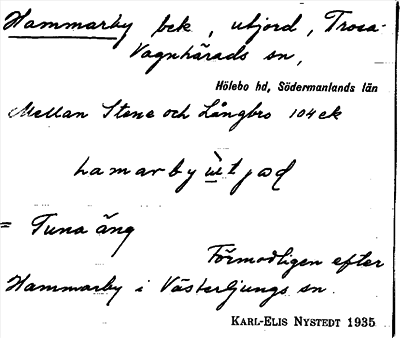 Hammarby bek, utjord, Trosa-
Vagnhärads sn,
Hölebo hd, Södermanlands län
Mellan Stene och Långbro 104 ek
hamarby ùtjoḍ
= Tuna äng
Förmodligen efter
Hammarby i Västerljungs sn.
KARL-ELIS NYSTEDT 1935